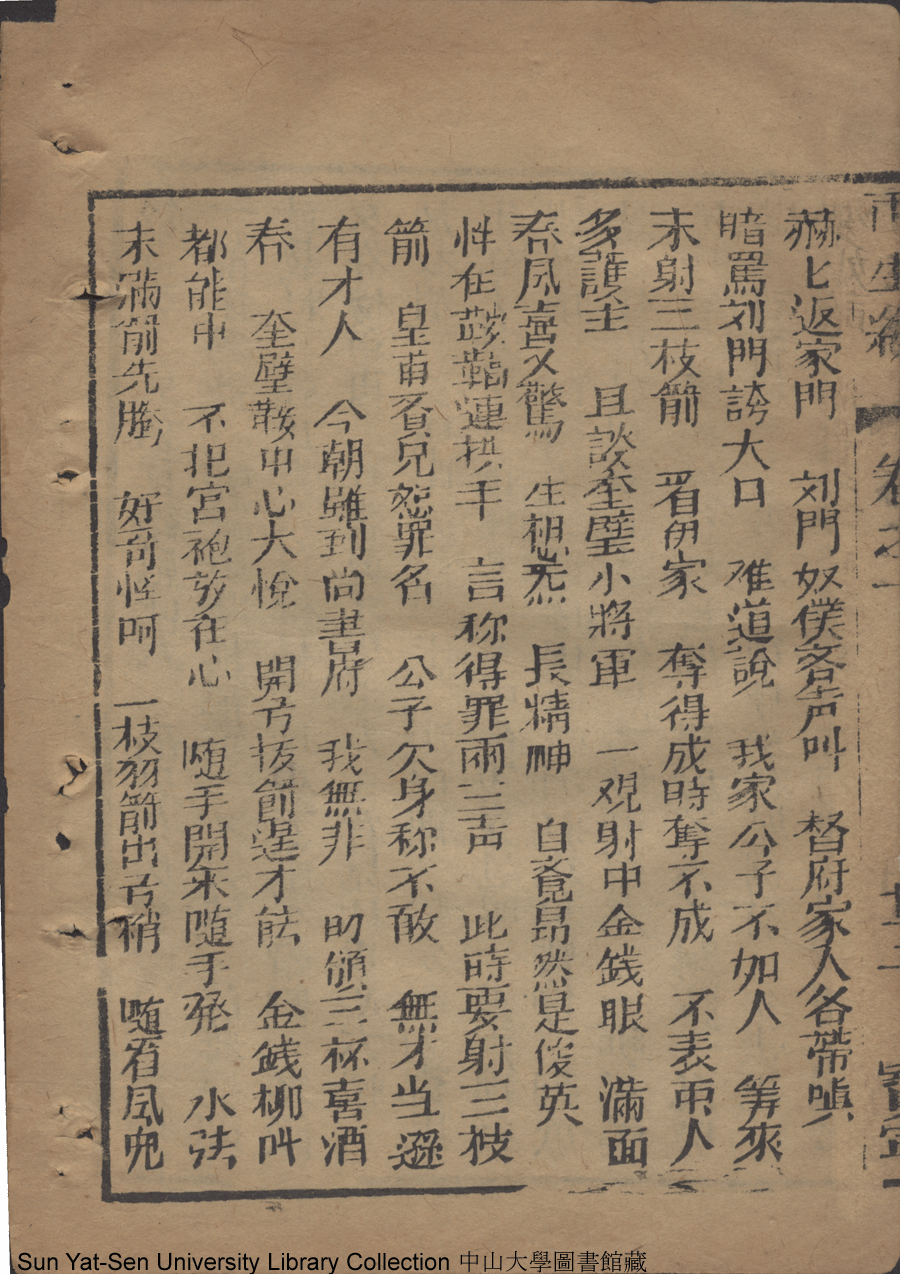 再生緣 卷之一
赫匕返家門　刘門奴僕吝声叫　督府家人各帶嗔
暗罵刘門誇大口　难道說　我家公子不如人　等來
未射三枝箭　看伊家　奪得成時奪不成　不表両人
多護主　且談奎璧小將軍　一观射中金錢眼　滿面
春風喜又驚　生想　長精神　自覔昂然是俊英
性在鼓鞽連拱手　言称得罪兩三声　此時要射三枝
箭　皇甫賢兄恕罪名　公子欠身称不敢　無才当遜
有才人　今朝雖到尚書府　我無非　叨領三杯喜酒
春　奎璧鞍中心大悅　開弓扳箭逞才能　金錢柳叫
都能中　不把宮袍放在心　随手開来随手発　水法
未滿箭先騰　好奇怪呵　一枝羽箭出弓稍　随着風兜